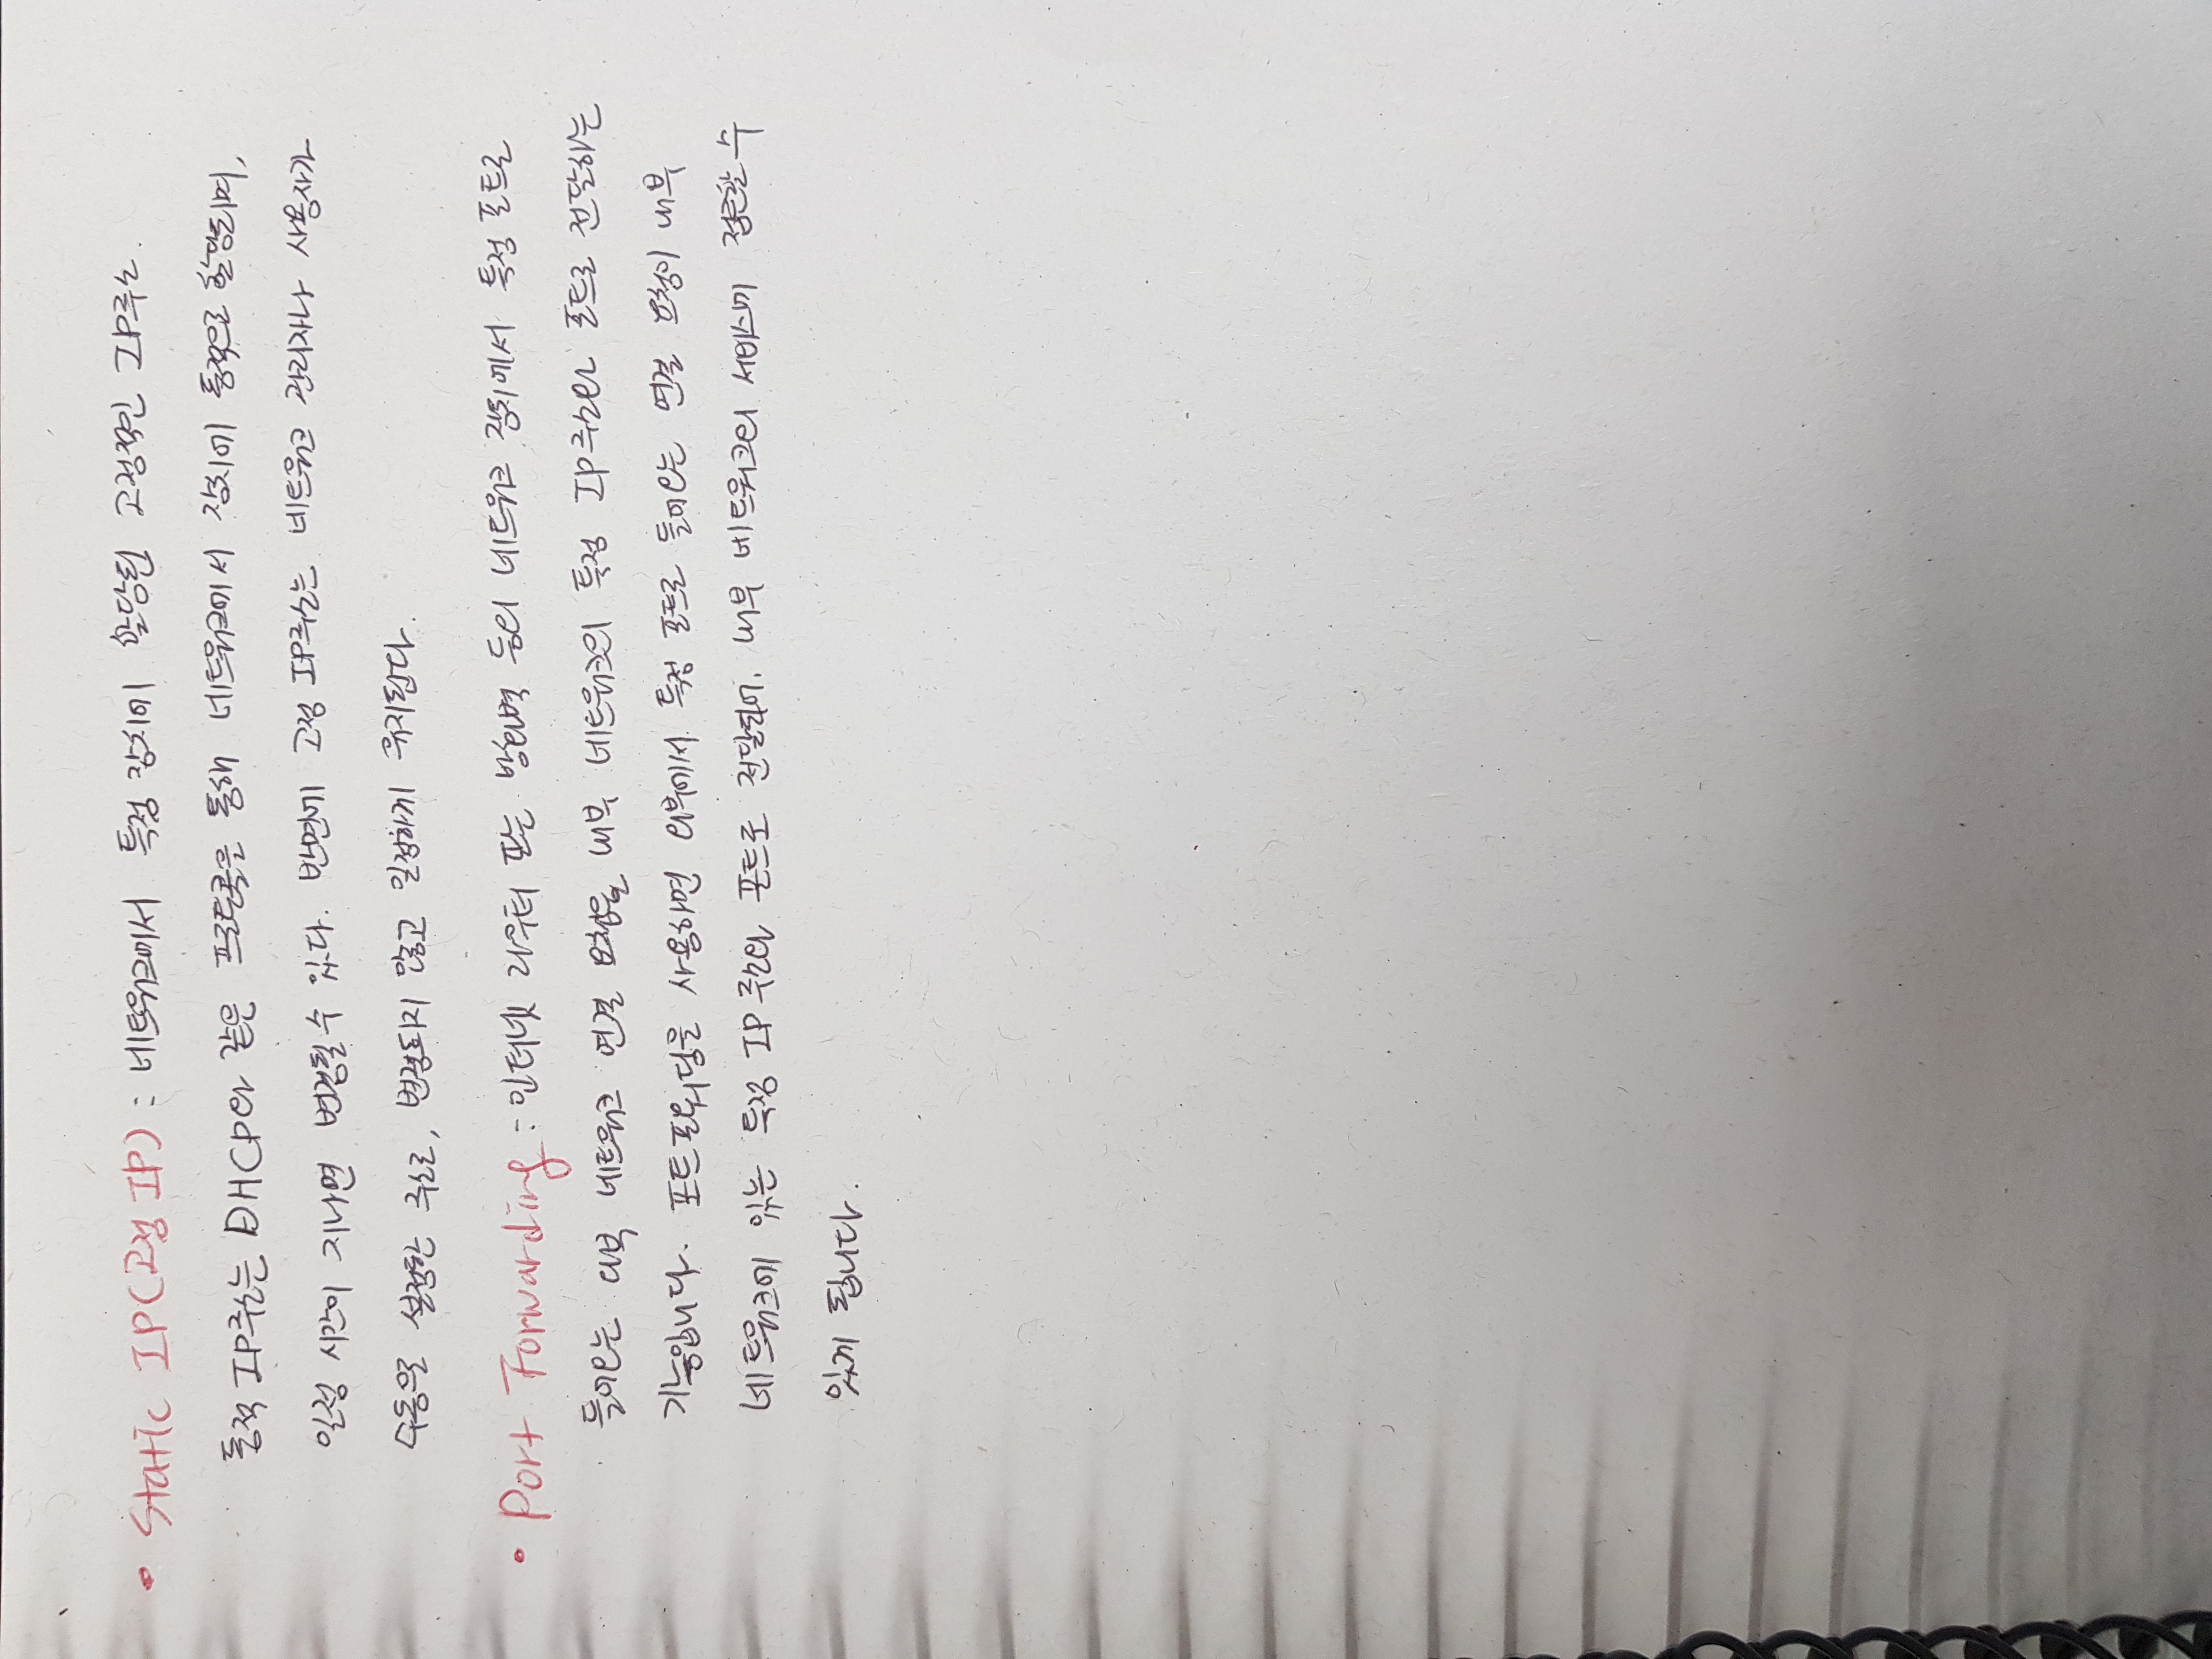 • Static IP(고정 IP) : 네트워크에서 특정 장치에 할당된 고정적인 IP주소.
동적 IP주소는 DHCP와 같은 프로토콜을 통해 네트워크에서 장치에 동적으로 할당되며,
일정 시간이 지나면 변경될 수 있다. 반면에 고정 IP주소는 네트워크 관리자나 사용자가
수동을 설정한 주소로, 변경되지 않고 일정하게 유지됩다.
• Port Forwarding : 인터넷 라우터 또는 방화벽 등의 네트워크 장치에서 특정 포트로
들어오는 외부 네트워크 연결 요청을 내부 네트워크의 특정 IP주소와 포트로 전달하는
기능입니다. 포트포워딩을 사용하면 외부에서 특정 포트로 들어오는 연결 요청이 내부
네트워크에 있는 특정 IP주소와 포트로 전달되어. 내부 네트워크의 서비스에 접근할 수
있게 됩니다.